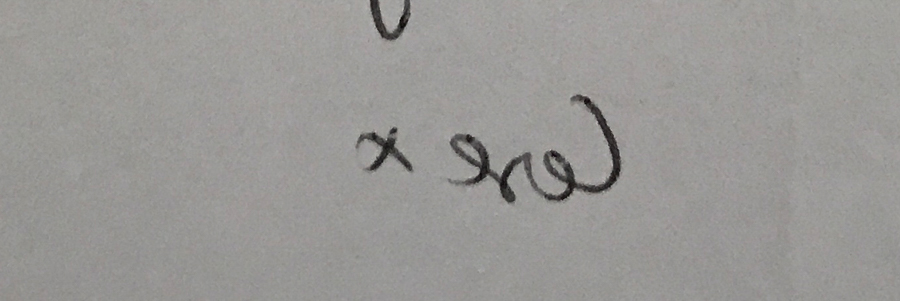 Love x